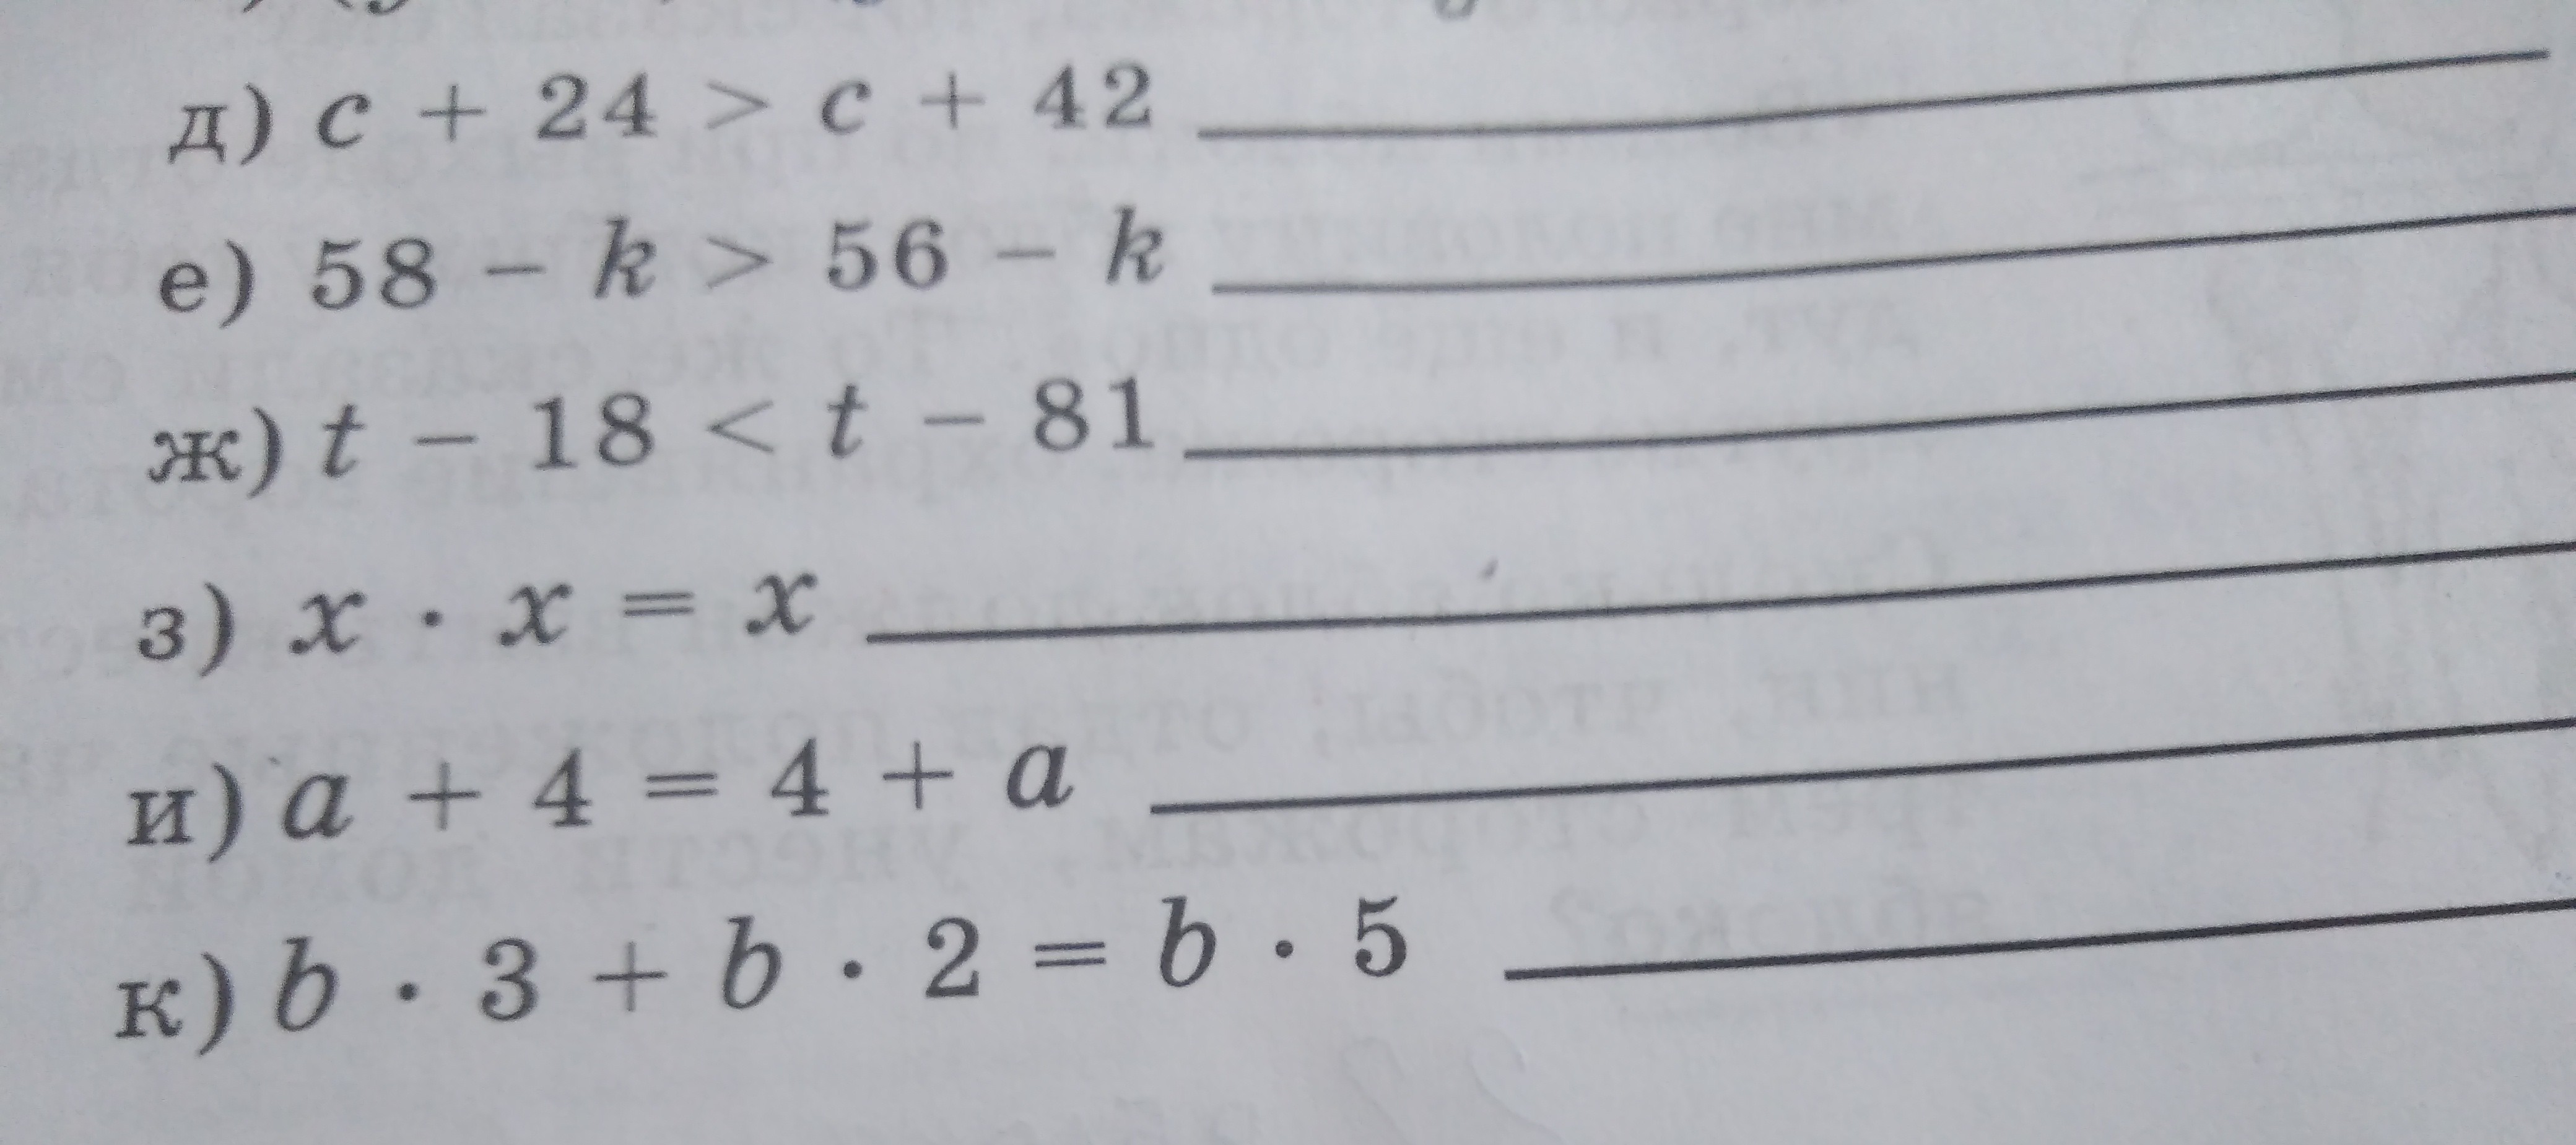 д) c + 24 > c + 42
е) 58 − k > 56 − k
ж) t − 18 < t − 81
з) x · x = x
и) a + 4 = 4 + a
к) b · 3 + b · 2 = b · 5